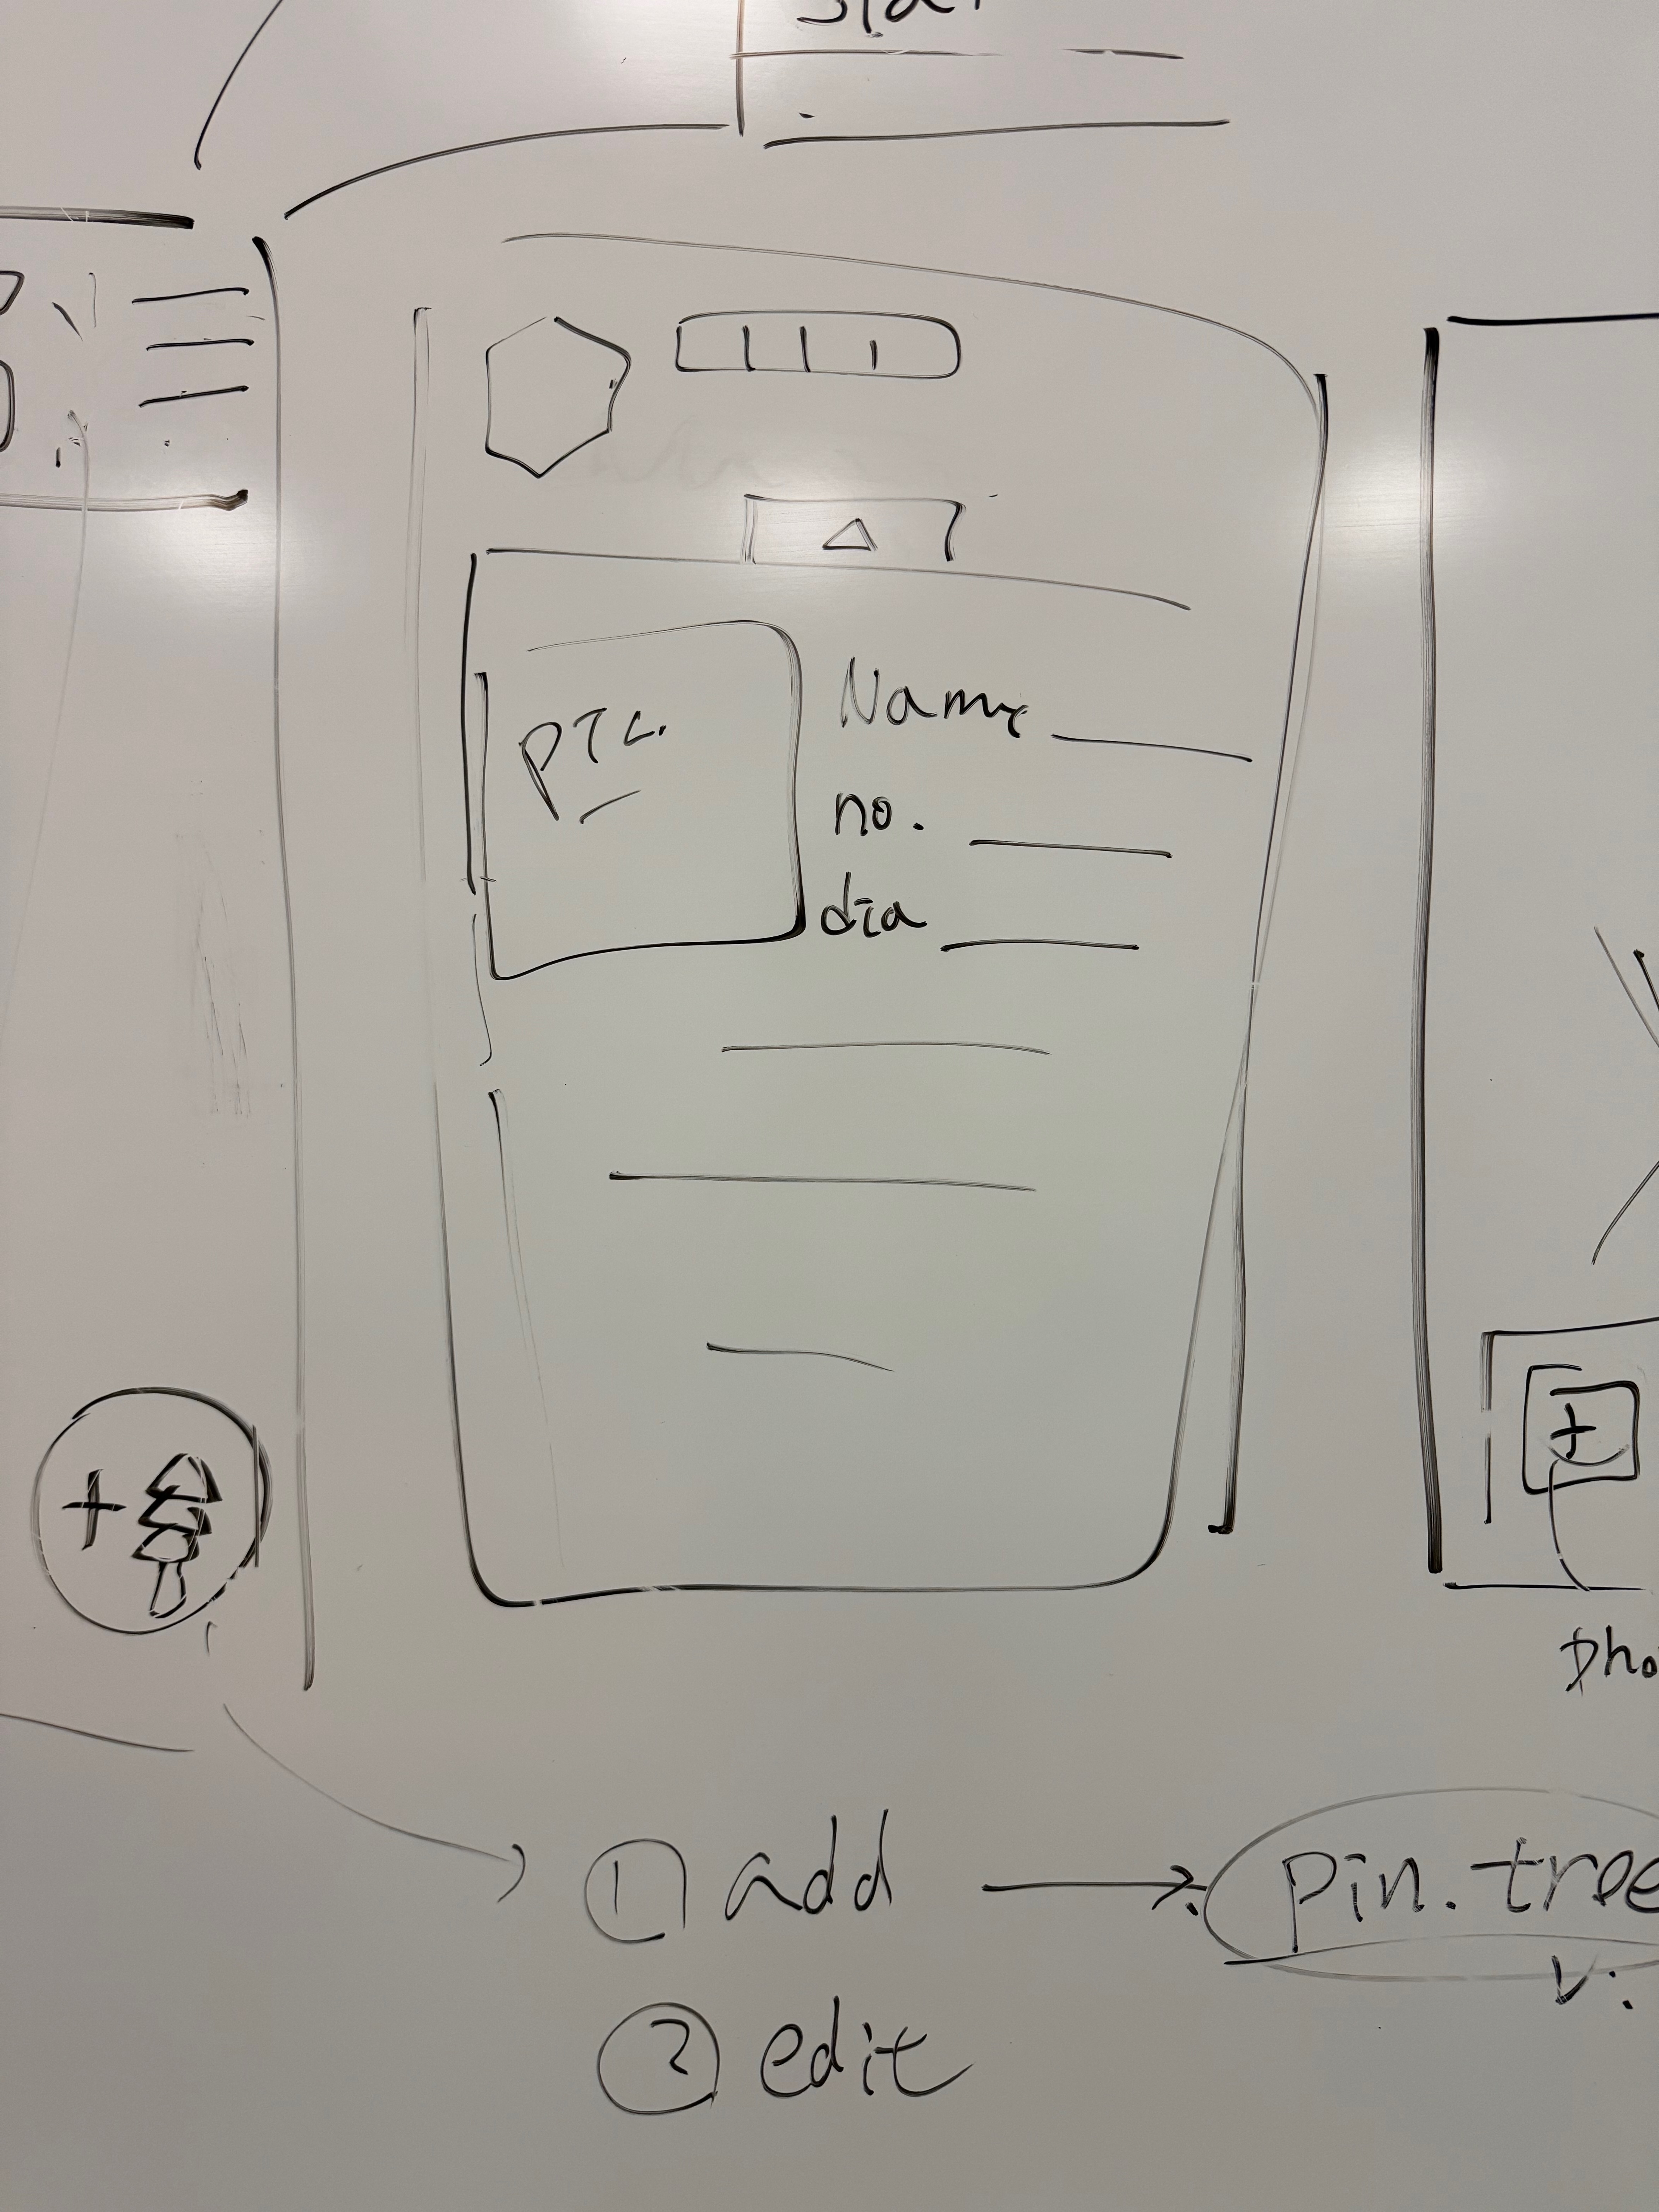 PIC.
Name
no.
dia
+
+
pho
① add → pin.tree
② edit